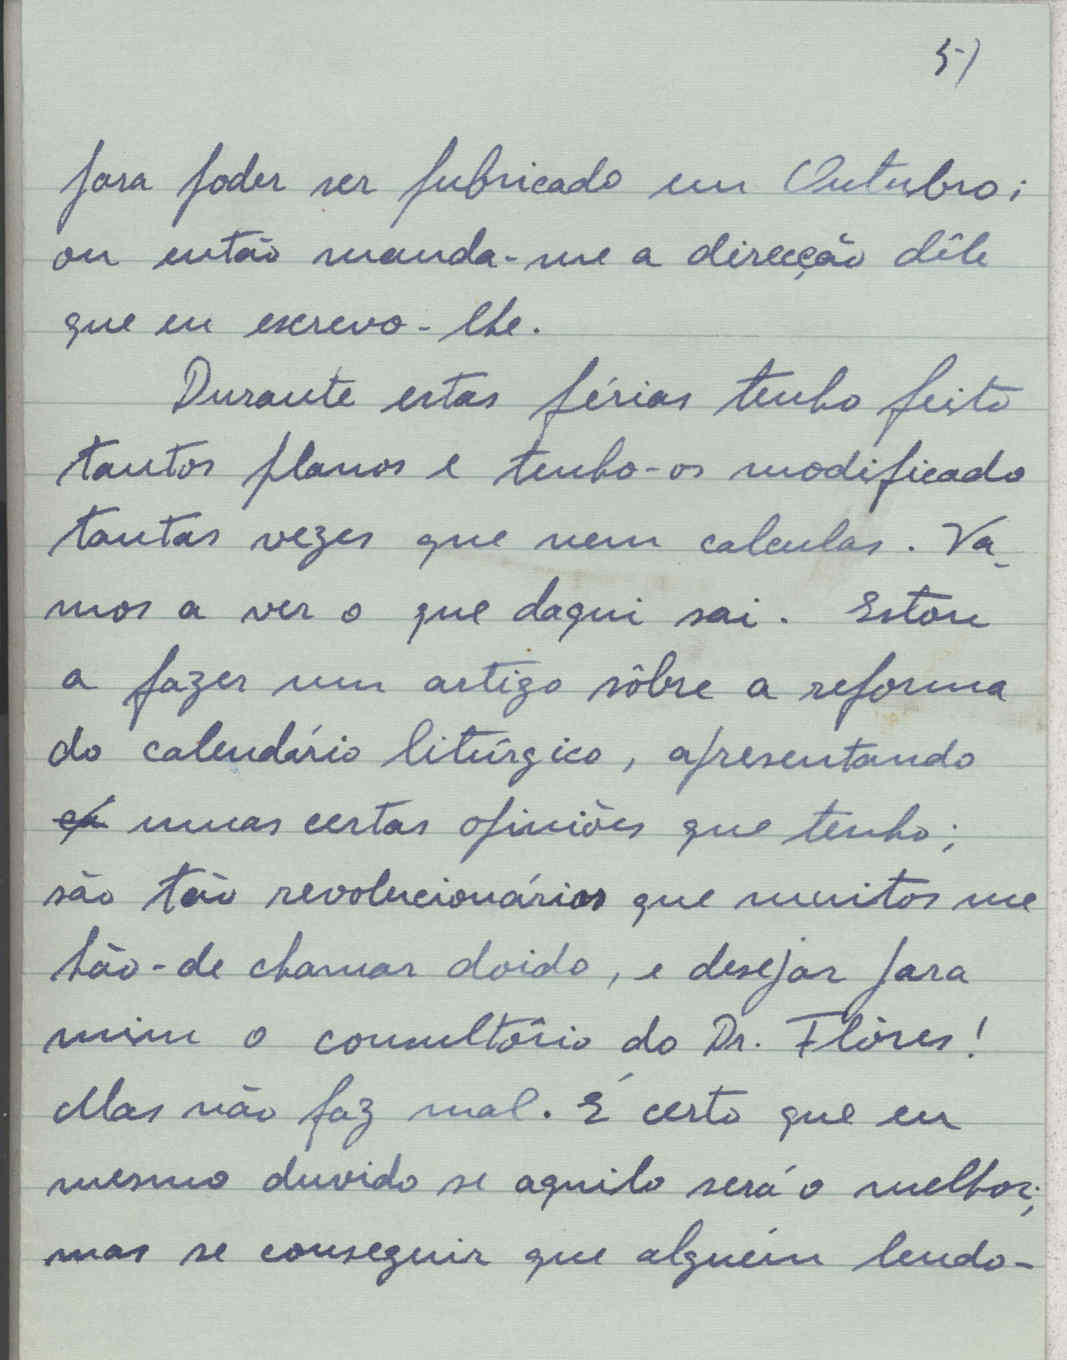 5-)
para poder ser publicado em Outubro;
ou então manda-me a direcção dêle
que eu escrevo-lhe.
Durante estas férias tenho feito
tantos planos e tenho-os modificado
tantas vezes que nem calculas. Va-
mos a ver o que daqui sai. Estou
a fazer um artigo sôbre a reforma
do calendário litúrgico, apresentando
umas certas opiniões que tenho;
são tão revolucionários que muitos me
hão-de chamar doido, e desejar para
mim o consultório do Dr. Flôres!
Mas não faz mal. É certo que eu
mesmo duvido se aquilo será o melhor;
mas se conseguir que alguém lendo-